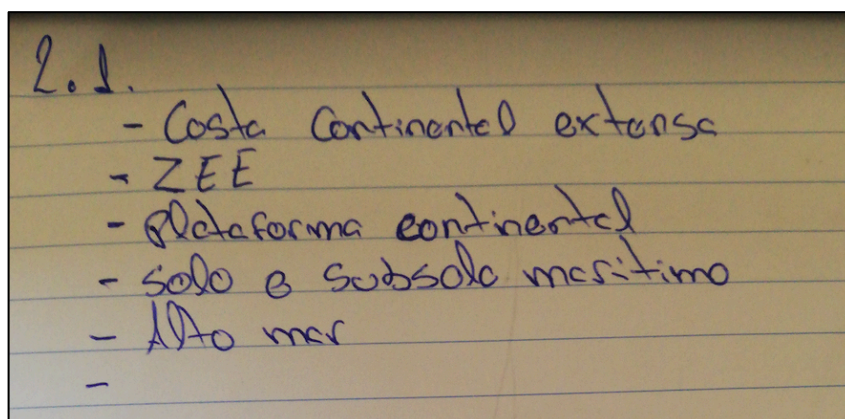 2.1.
- Costa Continental extensa
- ZEE
- plataforma continental
- solo e subsolo marítimo
- Alto mar
-